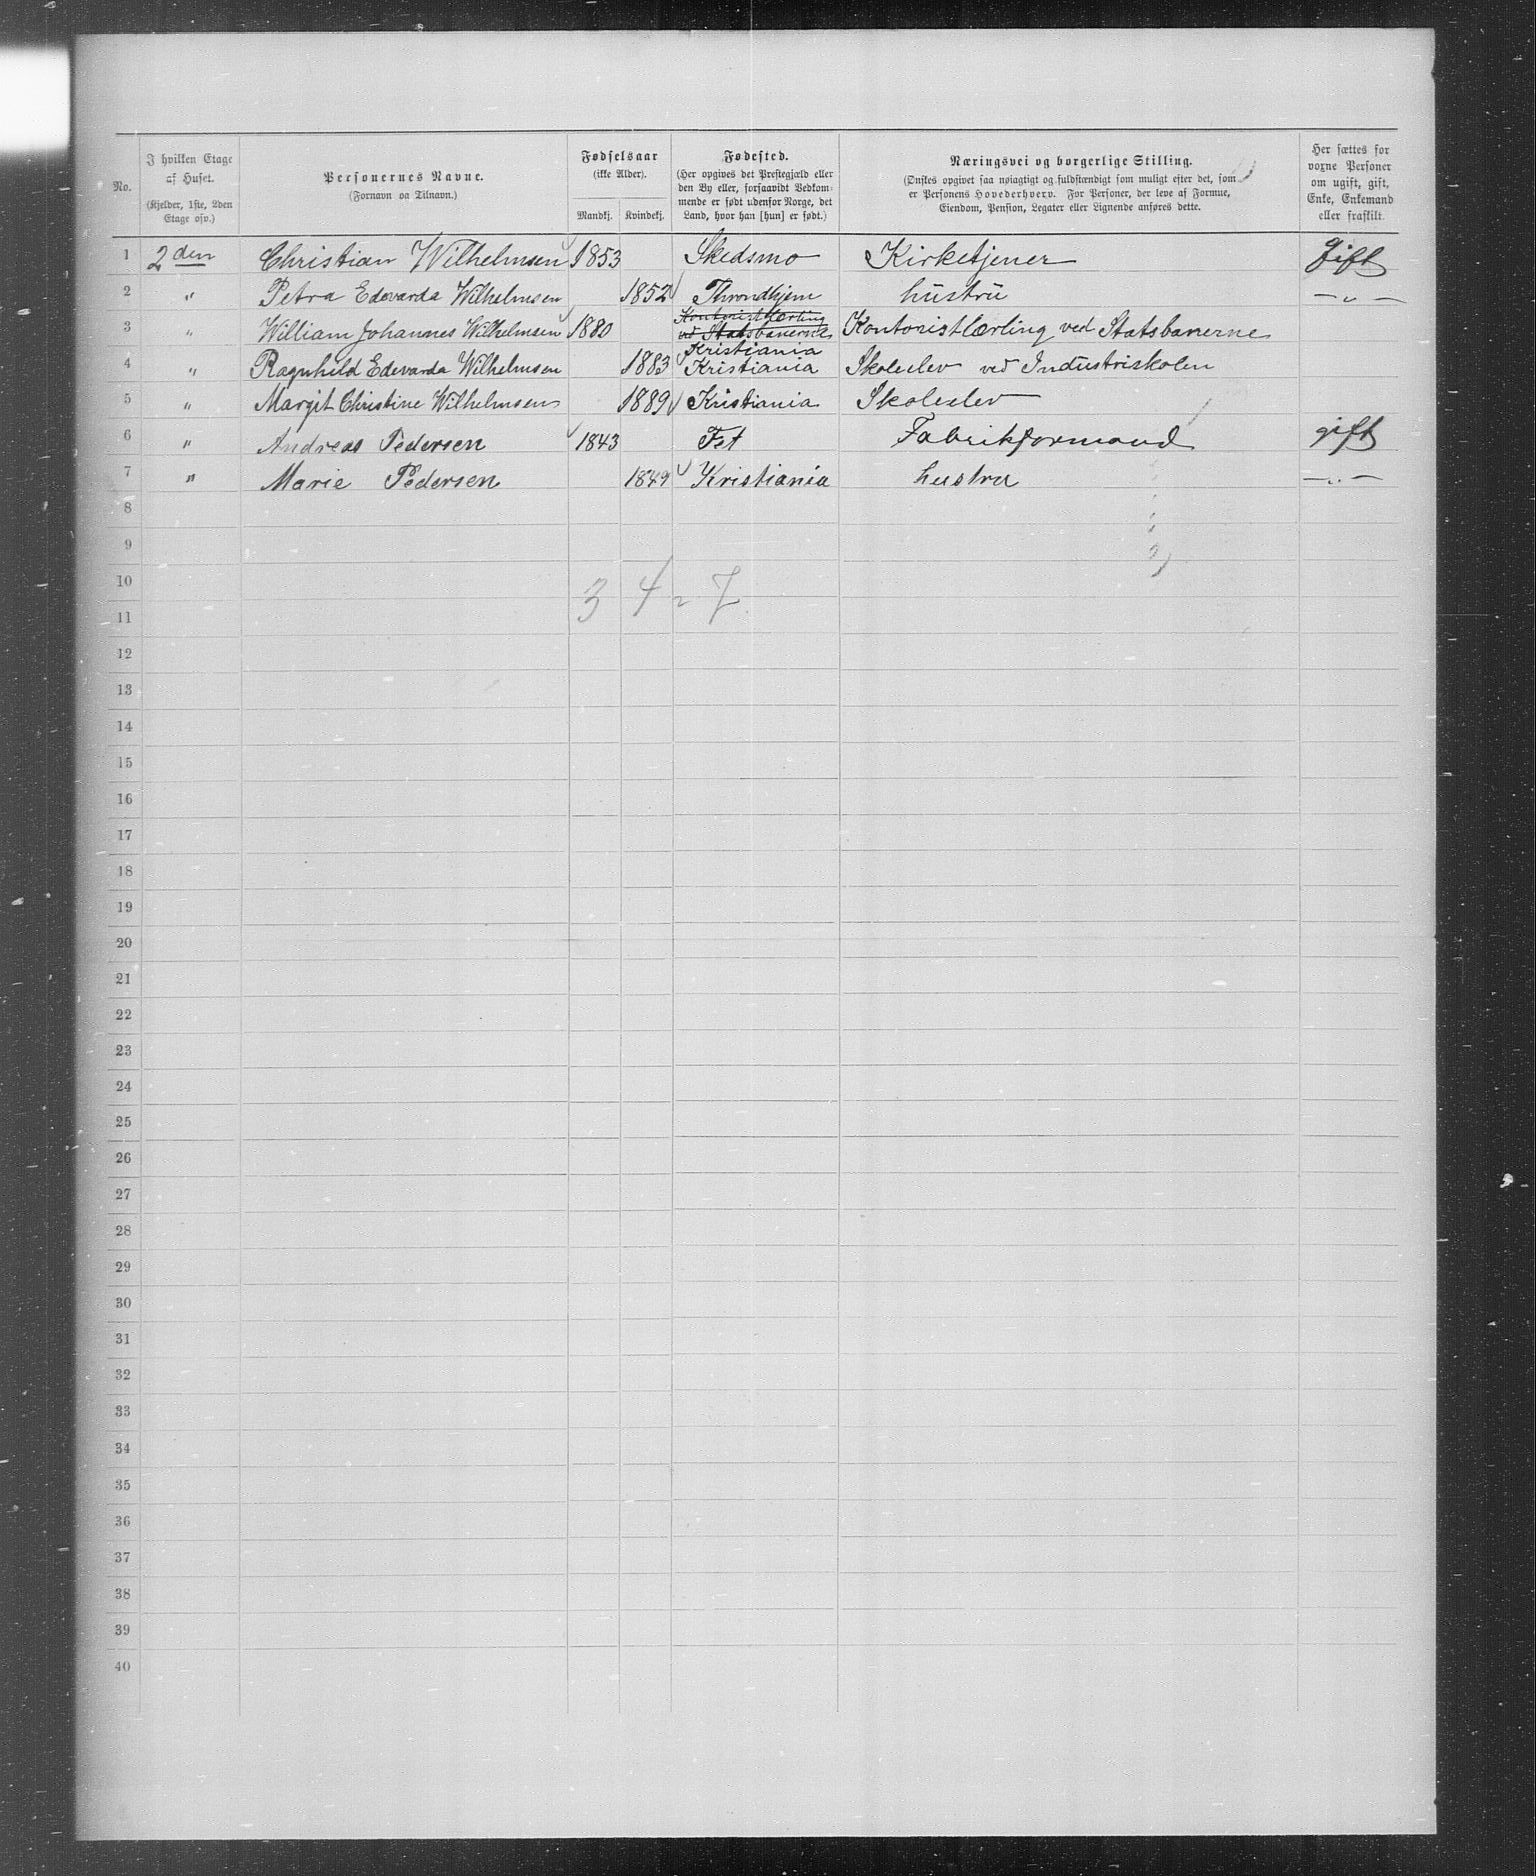 No. | I hvilken Etage af Huset. (Kjelder, 1ste, 2den Etage osv.) | Personernes Navne. (Fornavn og Tilnavn.) | Fødselsaar (ikke Alder). Mandkj. | Kvindekj. | Fødested. (Her opgives det Prestegjæld eller den By eller, forsaavidt Vedkommende er født udenfor Norge, det Land, hvor han [hun] er født.) | Næringsvei og borgerlige Stilling. (Ønskes opgivet saa nøiagtigt og fuldstændigt som muligt efter det, som er Personens Hovederhverv. For Personer, der leve af Formue, Eiendom, Pension, Legater eller Lignende anføres dette. | Her sættes for voxne Personer om ugift, gift, Enke, Enkemand eller fraskilt.
1 2den Christian Wilhelmsen 1853 Skedsmo Kirketjener gift
2 " Petra Edevarda Wilhelmsen 1852 Throndhjem hustru — „ —
3 " William Johannes Wilhelmsen 1880 Kontoristlærling ved Statsbanerne Kristiania Kontoristlærling ved Statsbanerne
4 " Ragnhild Edevarda Wilhelmsen 1883 Kristiania Skoleelev ved Industriskolen
5 " Margit Christine Wilhelmsen 1889 Kristiania Skoleelev
6 " Andreas Pedersen 1843 Fet Fabrikformand gift
7 " Marie Pedersen 1849 Kristiania hustru — „ —
8
9
10
3 4 = 7
11
12
13
14
15
16
17
18
19
20
21
22
23
24
25
26
27
28
29
30
31
32
33
34
35
36
37
38
39
40